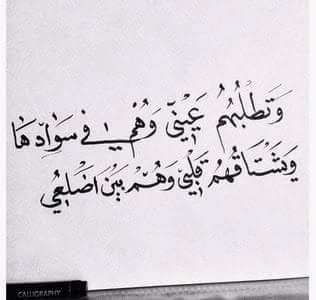 وَتَطْلُبُهُم عَيْنِي وَهُمْ فِي سَوَادِهَا
وَيَشْتَاقُهُم قَلْبِي وَهُمْ بَيْنَ أَضْلُعِي
CALLIGRAPHY